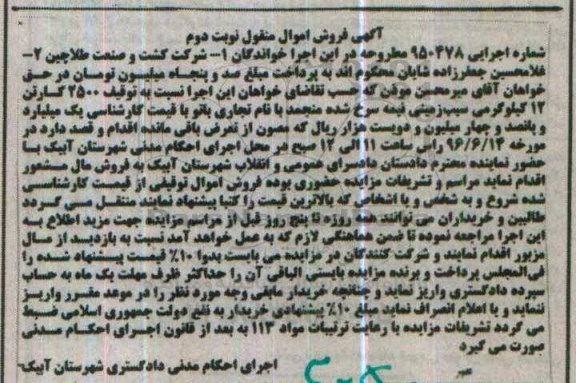 آگهی فروش اموال منقول نوبت دوم
شماره اجرایی ۹۵۰۴۷۸ مطروحه در این اجرا خواندگان ۱- شرکت کشت و صنعت طلاچین ۲-
غلامحسین جعفرزاده شایان محکوم اند به پرداخت مبلغ صد و پنجاه میلیون تومان در حق
خواهان آقای میرمحسن موقن که حسب تقاضای خواهان این اجرا نسبت به توقیف ۲۵۰۰ کارتن
۱۲ کیلوگرمی سیب‌زمینی نیمه سرخ شده منجمد با نام تجاری بانو با قیمت کارشناسی یک میلیارد
و پانصد و چهار میلیون و دویست هزار ریال که مصون از تعرض باقی مانده اقدام و قصد دارد در
مورخه ۹۶/۶/۱۴ راس ساعت ۱۱ الی ۱۲ صبح در محل اجرای احکام مدنی شهرستان آبیک با
حضور نماینده محترم دادستان دادسرای عمومی و انقلاب شهرستان آبیک به فروش مال
اقدام نماید مراسم و تشریفات مزایده حضوری بوده فروش اموال توقیفی از قیمت کارشناسی
شده شروع و به شخص و یا اشخاص که بالاترین قیمت را کتبا پیشنهاد نمایند منتقل می گردد
طالبین و خریداران می توانند همه روزه تا پنج روز قبل از مراسم مزایده جهت مزید اطلاع به
این اجرا مراجعه نموده تا ضمن هماهنگی لازم که به عمل خواهد آمد نسبت به بازدید از مال
مزبور اقدام نمایند و شرکت کنندگان در مزایده می بایست بدوا ۱۰٪ قیمت پیشنهاد شده را
فی‌المجلس پرداخت و برنده مزایده بایستی الباقی آن را حداکثر ظرف مهلت یک ماه به حساب
سپرده دادگستری واریز نماید و چنانچه خریدار مابقی وجه مورد نظر را در موعد مقرر واریز
ننماید و یا اعلام انصراف نماید مبلغ ۱۰٪ پیشنهادی خریدار به نفع دولت جمهوری اسلامی ضبط
می گردد تشریفات مزایده با رعایت ترتیبات مواد ۱۱۳ به بعد از قانون اجرای احکام مدنی
صورت می گیرد
اجرای احکام مدنی دادگستری شهرستان آبیک-